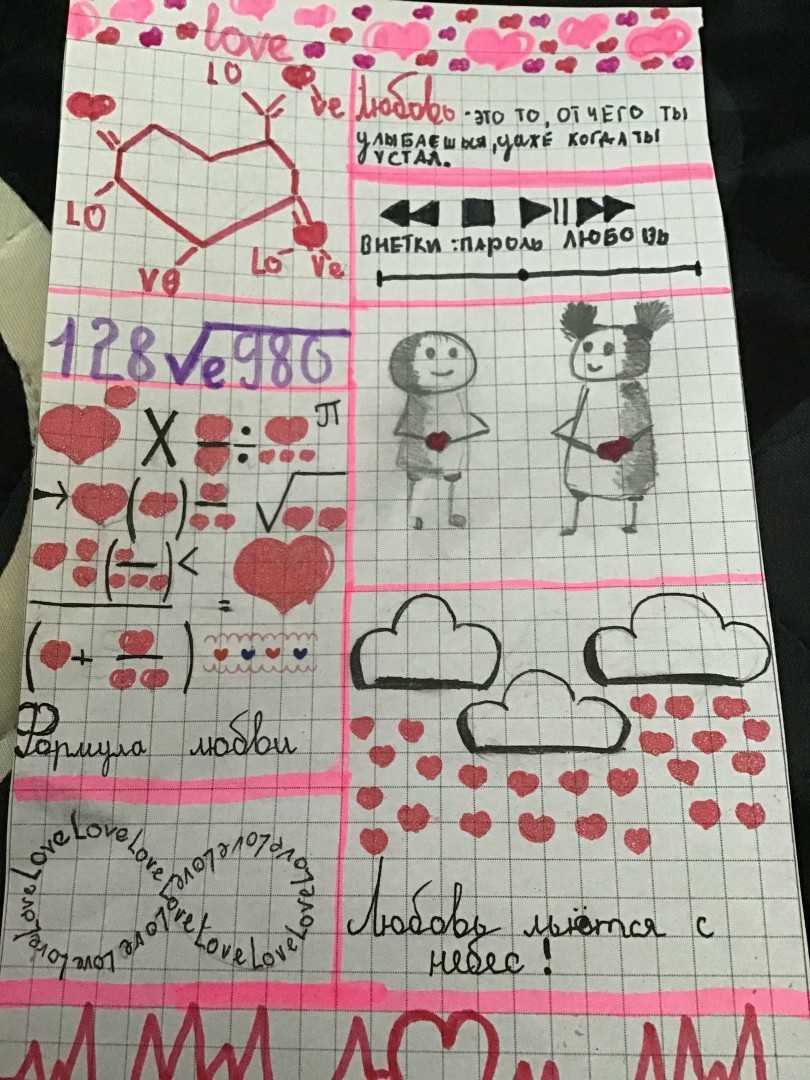 love
LO
ve
LO
VE
LO
ve
Любовь - это то, от чего ты
улыбаешься, даже когда ты
устал.
ВНЕТКИ : ПАРОЛЬ ЛЮБОВЬ
128√e980
X
÷
π
( )
√
( ) <
=
( + )
Формула любви
LoveLoveLoveLoveLoveLoveLoveLoveLoveLoveLoveLove
Любовь льётся с
небес !